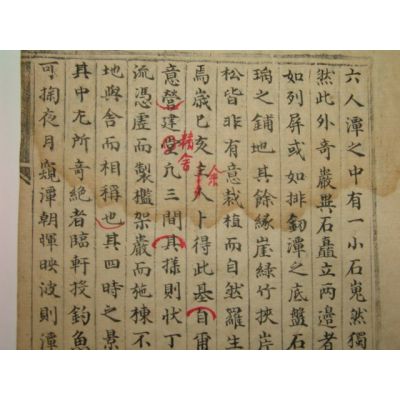 六人潭之中有一小石嵬然獨
然此外奇巖與石矗立两邊者
如列屏或如排釰潭之底盤石
之鋪地其餘緣崖綠竹挾岸
松皆非有意栽植而自然羅生
焉歳己亥主人卜得此基自爾
余
意營建堂凢三間其樣則状丁
精舍
流憑虛而製檻架巖而施棟不
地與舍而相稱也其四時之景
其中尤所奇絶者臨軒投釣魚
可掬夜月窺潭朝暉映波則潭